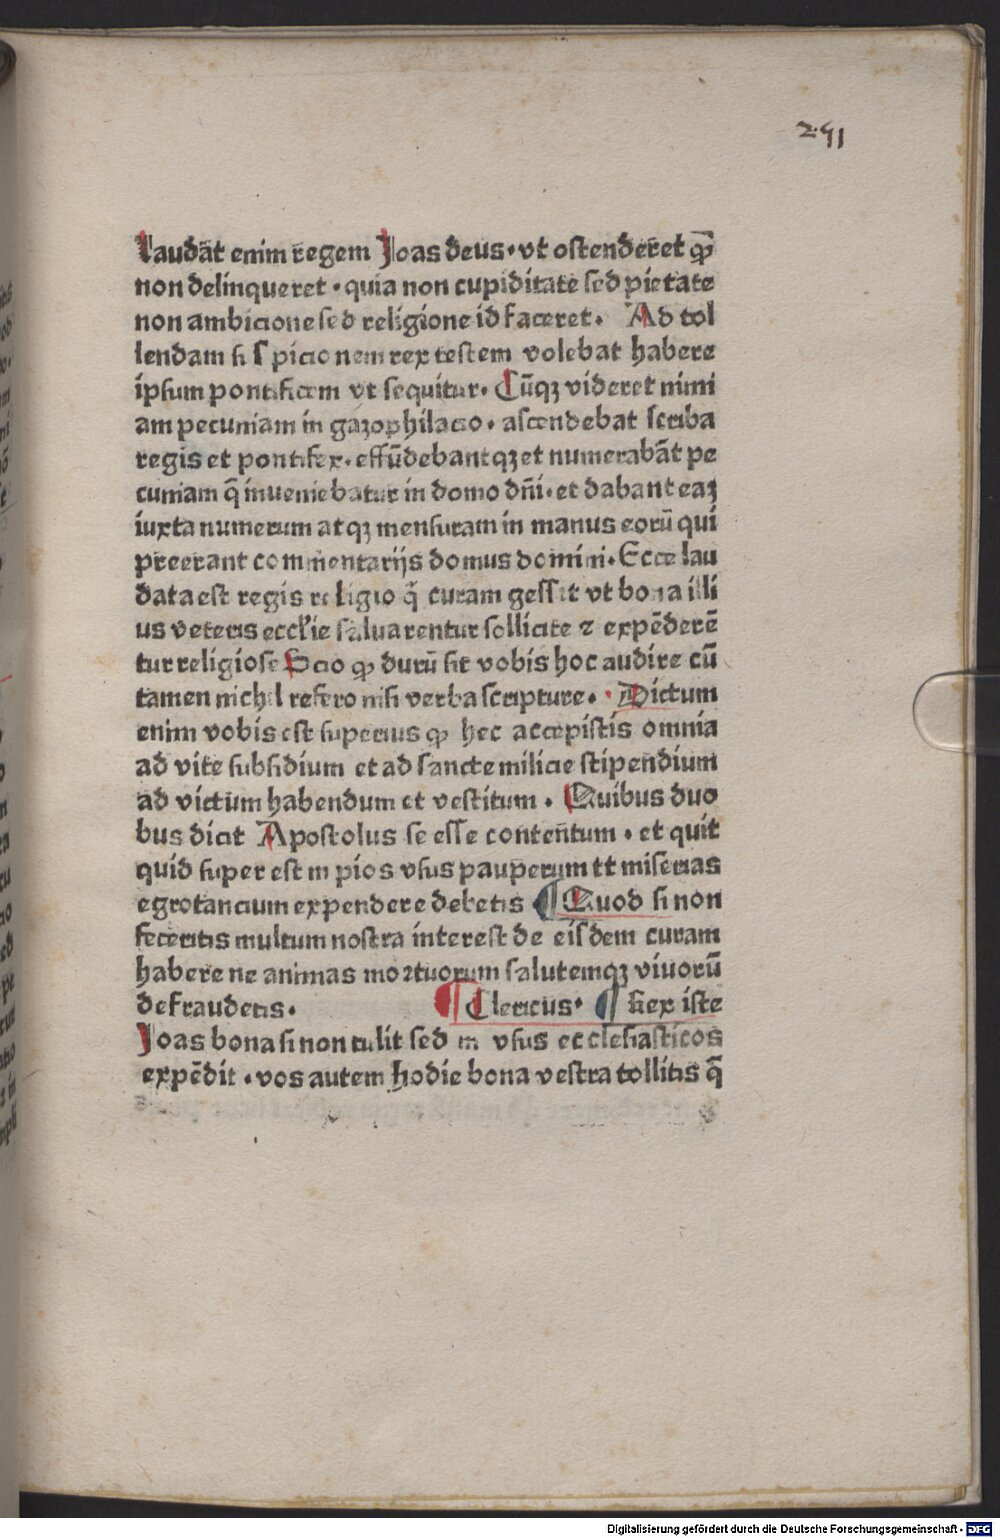 291
Laudāt enim regem Joas deus · vt ostenderet qꝫ
non delinqueret · quia non cupiditate sed pietate
non ambicione sed religione id faceret · Ad tol
lendam suspicionem rex testem volebat habere
ipsum pontificem vt sequitur · Cūqꝫ videret nimi
am pecuniam in gazophilacio · ascendebat scriba
regis et pontifex · effūdebantqꝫ et numerabāt pe
cuniam q̄ inueniebatur in domo dn̄i · et dabant eaꝫ
iuxta numerum atqꝫ mensuram in manus eorū qui
preerant commentarijs domus domini · Ecce lau
data est regis religio q̄ curam gessit vt bona illi
us veteris eccl'ie saluarentur sollicite ⁊ expēderē
tur religiose Scio ꝙ durū sit vobis hoc audire cū
tamen nichil refero nisi verba scripture · Dictum
enim vobis est superius ꝙ hec accepistis omnia
ad vite subsidium et ad sancte milicie stipendium
ad victum habendum et vestitum · Quibus duo
bus dicit Apostolus se esse contentum · et quit
quid super est in pios vsus pauperum et miserias
egrotancium expendere debetis ¶ Quod si non
feceritis multum nostra interest de eisdem curam
habere ne animas mortuorum salutemqꝫ viuorū
defraudetis · ¶ Clericus · ¶ Rex iste
Joas bona si non tulit sed in vsus ecclesiasticos
expēdit · vos autem hodie bona vestra tollitis q̄
Digitalisierung gefördert durch die Deutsche Forschungsgemeinschaft - DFG